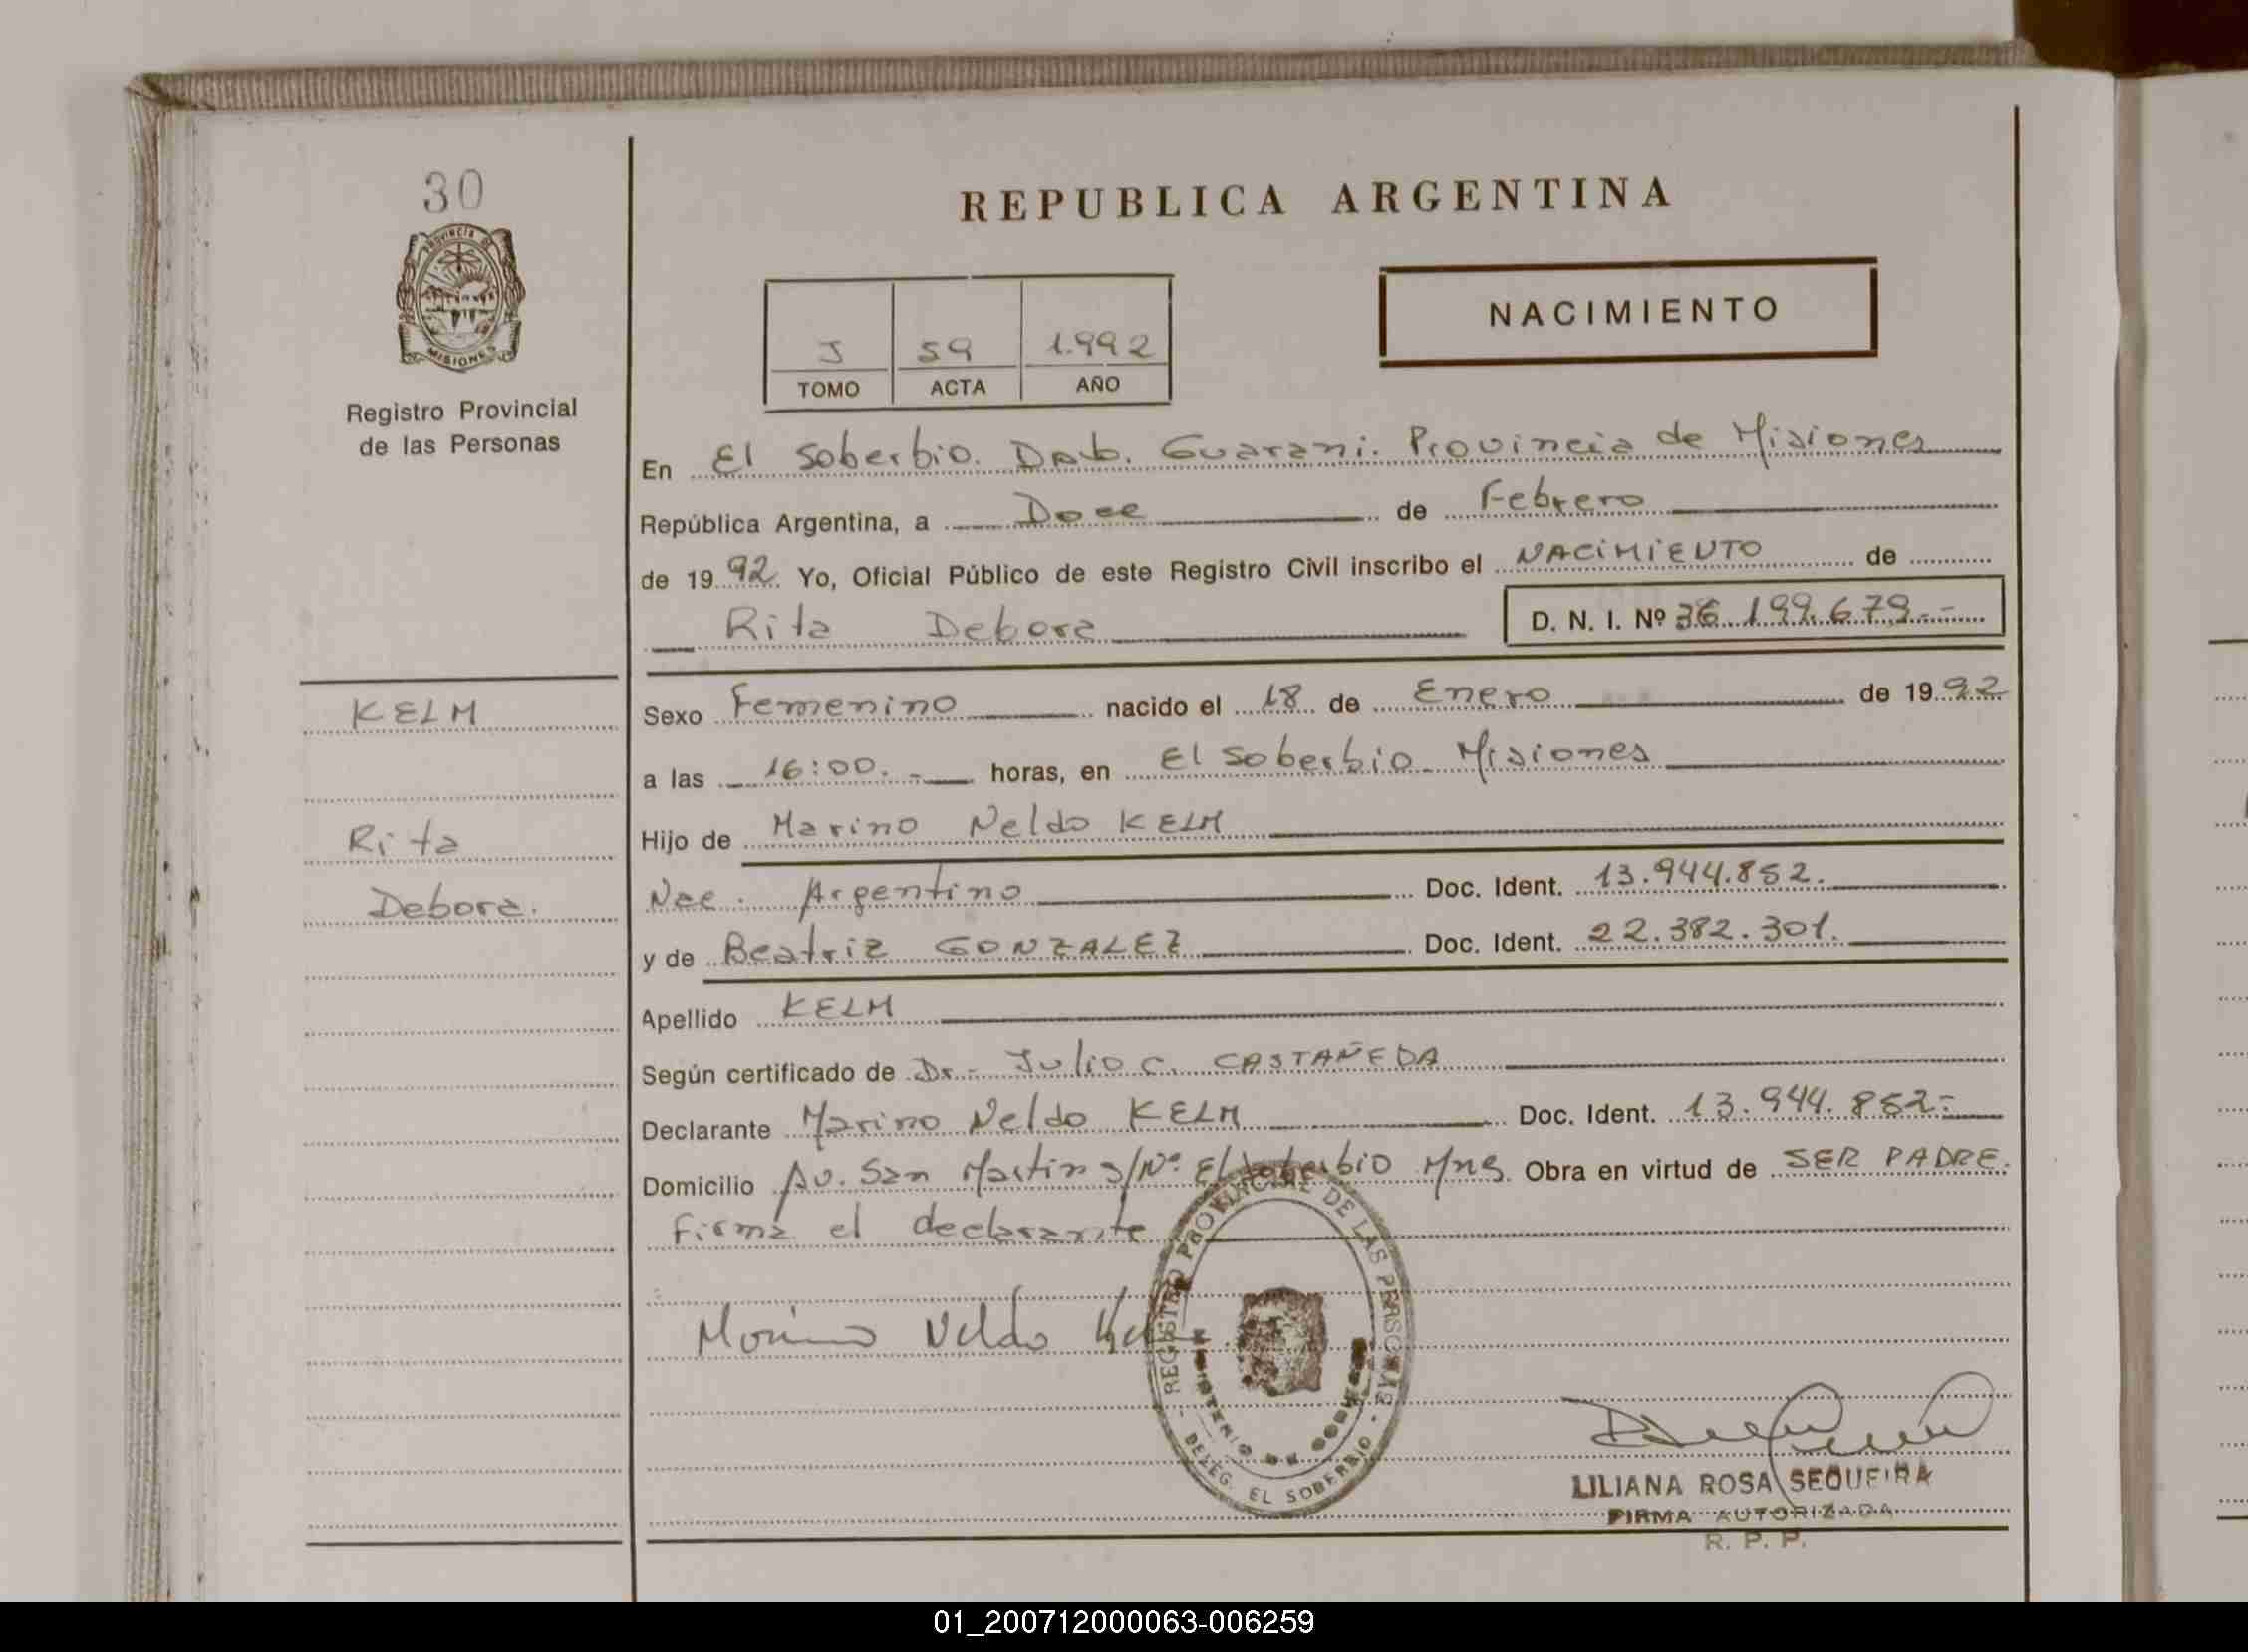 30
PROVINCIA DE
MISIONES
Registro Provincial
de las Personas
KELM
Rita
Debora.
REPUBLICA ARGENTINA
NACIMIENTO
J 59 1.992
TOMO ACTA AÑO
En El Soberbio. Dpto. Guarani. Provincia de Misiones
República Argentina, a Doce de Febrero
de 19 92. Yo, Oficial Público de este Registro Civil inscribo el NACIMIENTO de
Rita Debora D. N. I. Nº 36.199.679.-
Sexo Femenino nacido el 18 de Enero de 19 92
a las 16:00.- horas, en El Soberbio Misiones
Hijo de Marino Neldo KELM
Nac. Argentino Doc. Ident. 13.944.852.
y de Beatriz GONZALEZ Doc. Ident. 22.382.301.
Apellido KELM
Según certificado de Dr.- Julio C. CASTAÑEDA
Declarante Marino Neldo KELM Doc. Ident. 13.944.852-
Domicilio Av. San Martin s/Nº El Soberbio Mns. Obra en virtud de SER PADRE.
Firma el declarante
Marino Neldo Kelm
REGISTRO PROVINCIAL DE LAS PERSONAS
MINISTERIO DE GOBIERNO
- DELEG. EL SOBERBIO -
LILIANA ROSA SEQUEIRA
FIRMA AUTORIZADA
R. P. P.
01_200712000063-006259